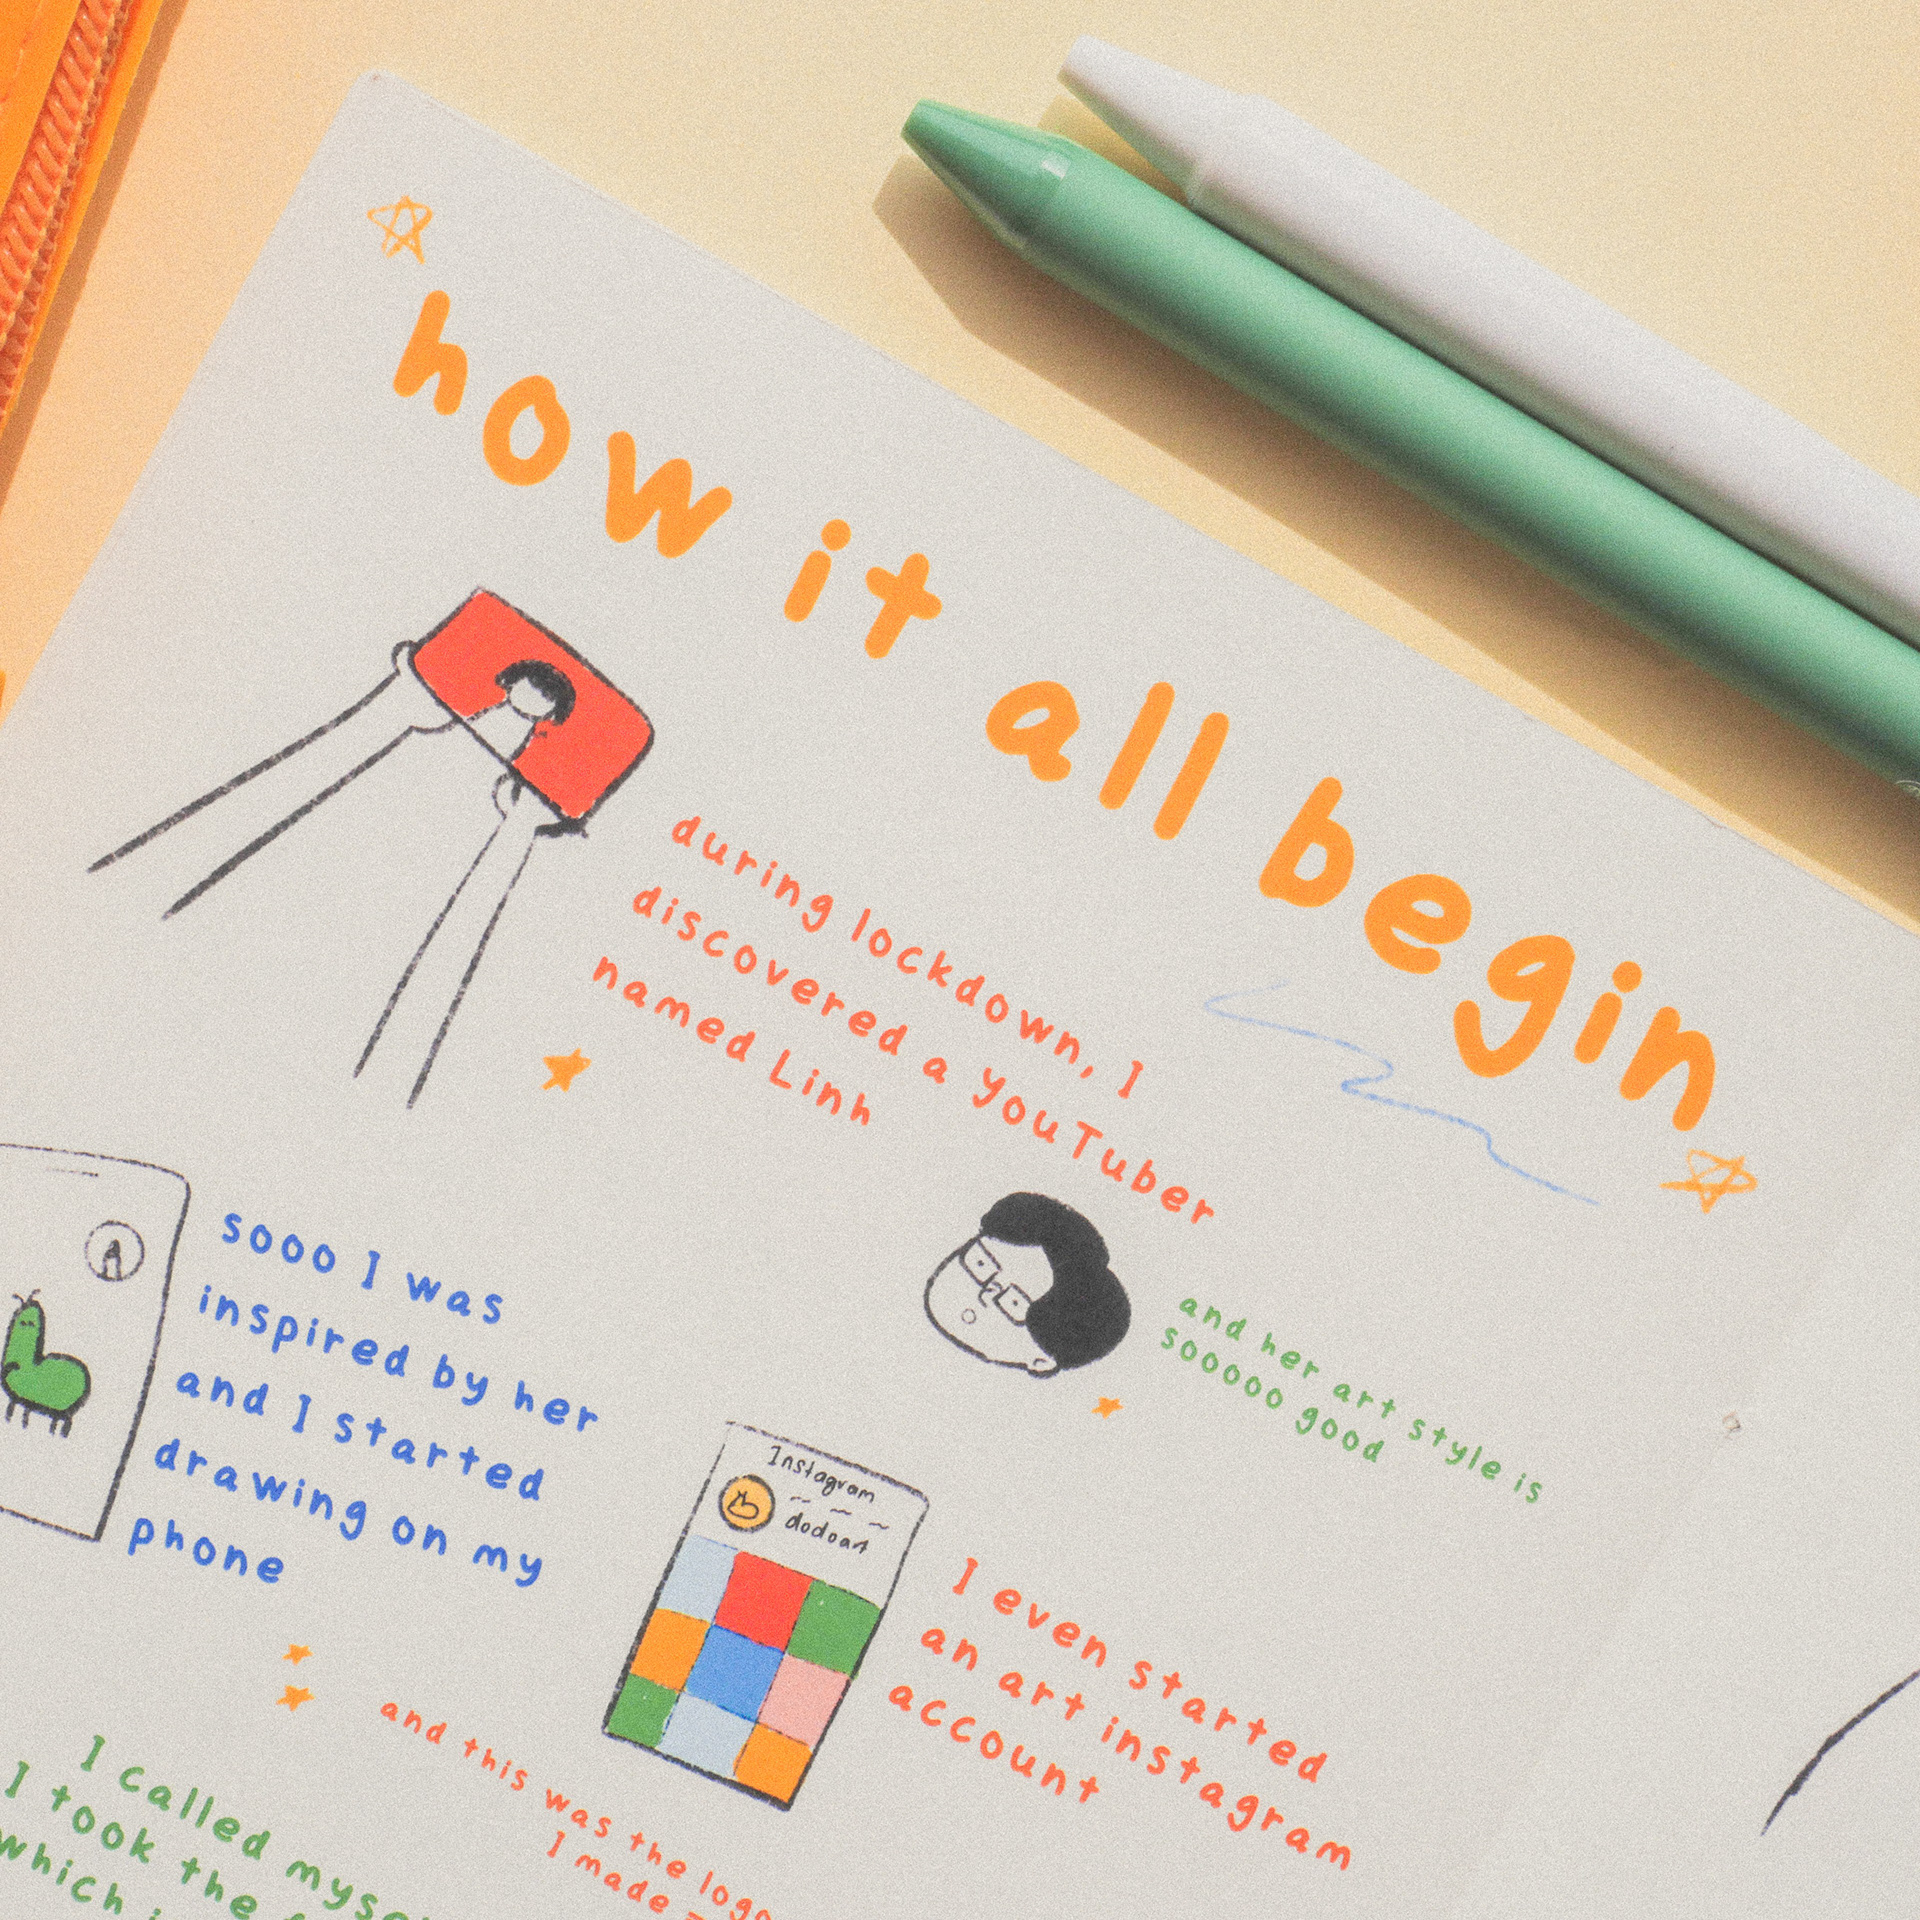 how it all begin
during lockdown, I
discovered a YouTuber
named Linh
and her art style is
sooooo good
sooo I was
inspired by her
and I started
drawing on my
phone
Instagram
dodoart
I even started
an art instagram
account
and this was the logo
I made
I called
I took the
which